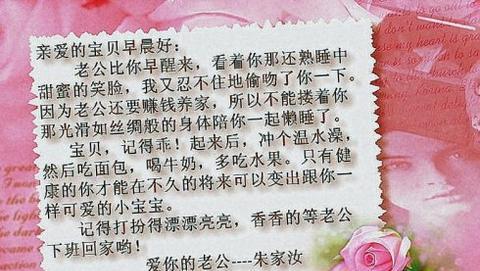 亲爱的宝贝早晨好：
老公比你早醒来，看着你那还熟睡中
甜蜜的笑脸，我又忍不住地偷吻了你一下。
因为老公还要赚钱养家，所以不能搂着你
那光滑如丝绸般的身体陪你一起懒睡了。
宝贝，记得乖！起来后，冲个温水澡，
然后吃面包，喝牛奶，多吃水果。只有健
康的你才能在不久的将来可以变出跟你一
样可爱的小宝宝。
记得打扮得漂漂亮亮，香香的等老公
下班回家哟！
爱你的老公----朱家汝